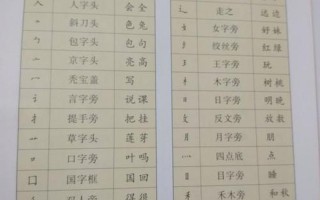 人 人字头 会 全
⺈ 斜刀头 色 兔
勹 包字头 包 句
亠 京字头 亮 高
冖 秃宝盖 写
讠 言字旁 说 课
扌 提手旁 把 挂
艹 草字头 莲 芽
口 口字旁 叶 吗
囗 国字框 国 回
彳 双人旁 得 很
辶 走之 远 连
女 女字旁 好 妹
纟 绞丝旁 红 绿
王 王字旁 玩
木 木字旁 树 桃
日 日字旁 明 晚
攵 反文旁 放 数
月 月字旁 朋
灬 四点底 点
目 目字旁 睡
禾 禾木旁 和 秋